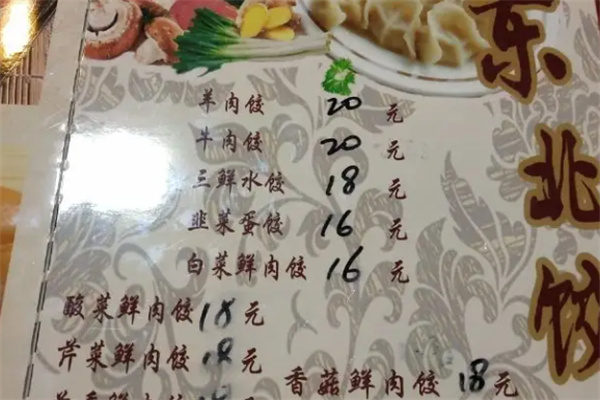 东北饺
羊肉饺 20 元
牛肉饺 20 元
三鲜水饺 18 元
韭菜蛋饺 16 元
白菜鲜肉饺 16 元
酸菜鲜肉饺 18 元
芹菜鲜肉饺 18 元
香菇鲜肉饺 18 元